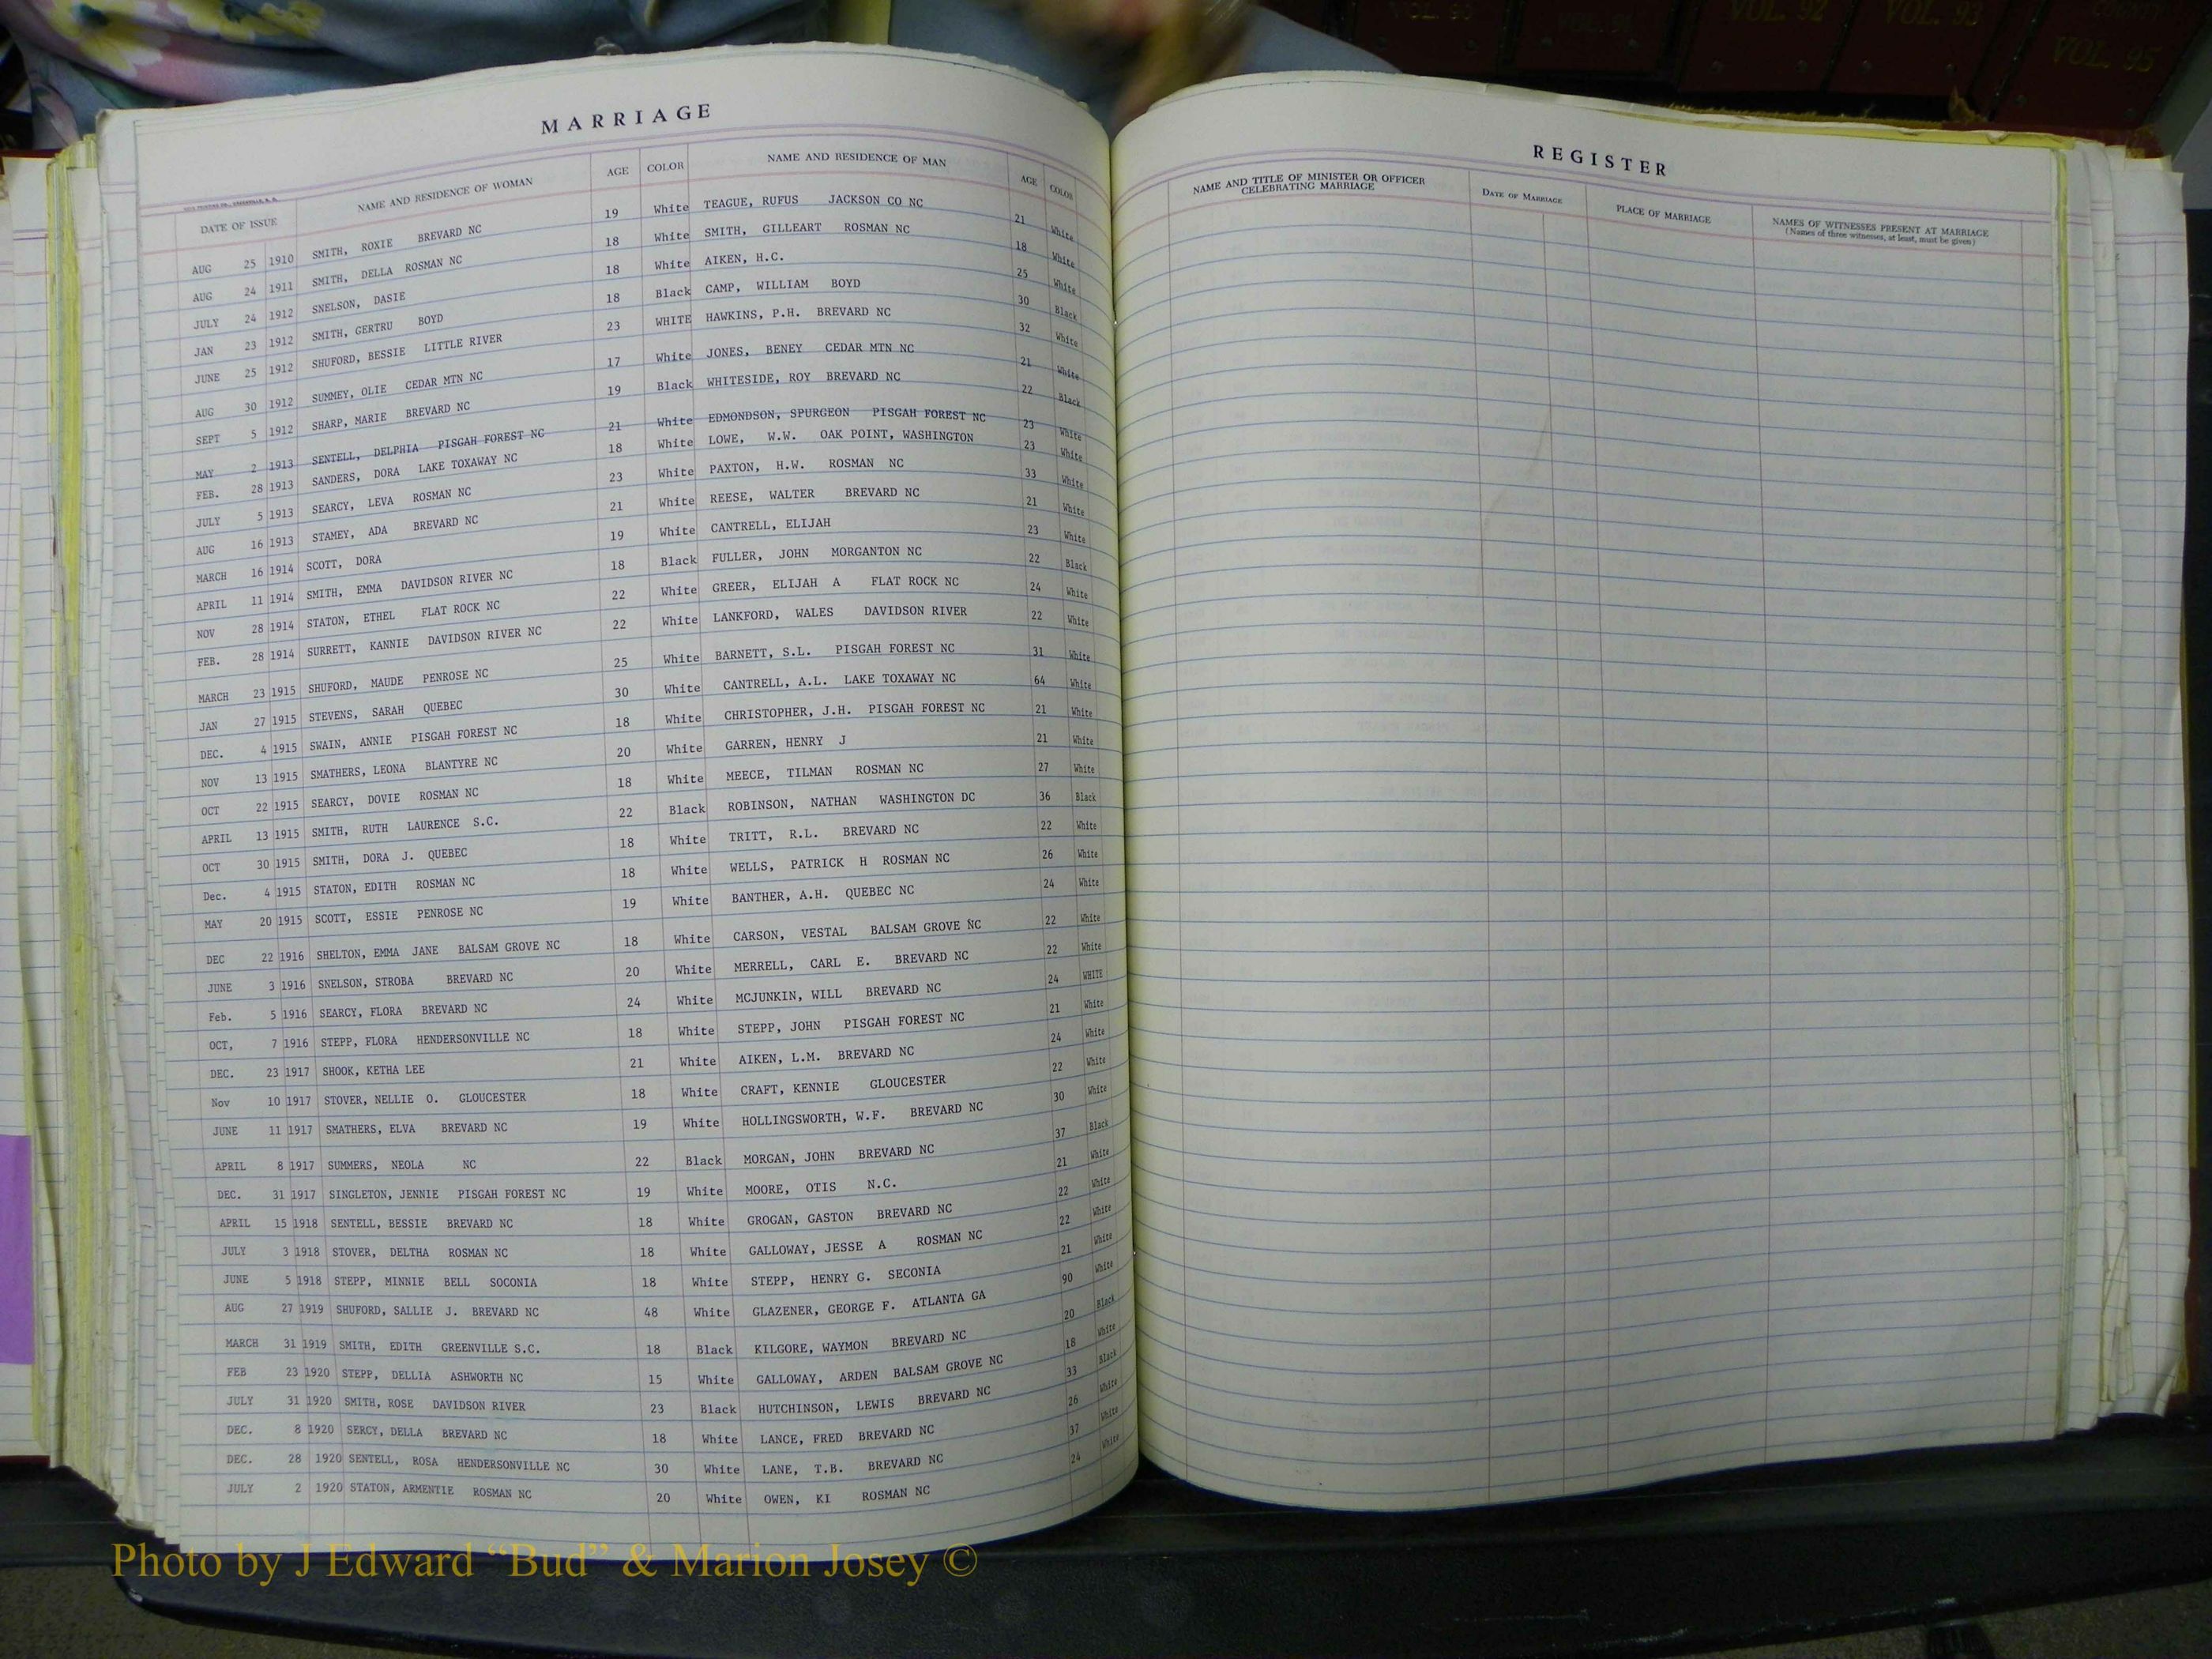 VOL. 90 VOL. 91 VOL. 92 VOL. 93 COUNTY VOL. 95
MARRIAGE
DATE OF ISSUE NAME AND RESIDENCE OF WOMAN AGE COLOR NAME AND RESIDENCE OF MAN AGE COLOR
AUG 25 1910 SMITH, ROXIE BREVARD NC 19 White TEAGUE, RUFUS JACKSON CO NC 21 White
AUG 24 1911 SMITH, DELLA ROSMAN NC 18 White SMITH, GILLEART ROSMAN NC 18 White
JULY 24 1912 SNELSON, DASIE 18 White AIKEN, H.C. 25 White
JAN 23 1912 SMITH, GERTRU BOYD 18 Black CAMP, WILLIAM BOYD 30 Black
JUNE 25 1912 SHUFORD, BESSIE LITTLE RIVER 23 WHITE HAWKINS, P.H. BREVARD NC 32 White
AUG 30 1912 SUMMEY, OLIE CEDAR MTN NC 17 White JONES, BENEY CEDAR MTN NC 21 White
SEPT 5 1912 SHARP, MARIE BREVARD NC 19 Black WHITESIDE, ROY BREVARD NC 22 Black
MAY 2 1913 SENTELL, DELPHIA PISGAH FOREST NC 21 White EDMONDSON, SPURGEON PISGAH FOREST NC 23 White
FEB. 28 1913 SANDERS, DORA LAKE TOXAWAY NC 18 White LOWE, W.W. OAK POINT, WASHINGTON 23 White
JULY 5 1913 SEARCY, LEVA ROSMAN NC 23 White PAXTON, H.W. ROSMAN NC 33 White
AUG 16 1913 STAMEY, ADA BREVARD NC 21 White REESE, WALTER BREVARD NC 21 White
MARCH 16 1914 SCOTT, DORA 19 White CANTRELL, ELIJAH 23 White
APRIL 11 1914 SMITH, EMMA DAVIDSON RIVER NC 18 Black FULLER, JOHN MORGANTON NC 22 Black
NOV 28 1914 STATON, ETHEL FLAT ROCK NC 22 White GREER, ELIJAH A FLAT ROCK NC 24 White
FEB. 28 1914 SURRETT, KANNIE DAVIDSON RIVER NC 22 White LANKFORD, WALES DAVIDSON RIVER 22 White
MARCH 23 1915 SHUFORD, MAUDE PENROSE NC 25 White BARNETT, S.L. PISGAH FOREST NC 31 White
JAN 27 1915 STEVENS, SARAH QUEBEC 30 White CANTRELL, A.L. LAKE TOXAWAY NC 64 White
DEC. 4 1915 SWAIN, ANNIE PISGAH FOREST NC 18 White CHRISTOPHER, J.H. PISGAH FOREST NC 21 White
NOV 13 1915 SMATHERS, LEONA BLANTYRE NC 20 White GARREN, HENRY J 21 White
OCT 22 1915 SEARCY, DOVIE ROSMAN NC 18 White MEECE, TILMAN ROSMAN NC 27 White
APRIL 13 1915 SMITH, RUTH LAURENCE S.C. 22 Black ROBINSON, NATHAN WASHINGTON DC 36 Black
OCT 30 1915 SMITH, DORA J. QUEBEC 18 White TRITT, R.L. BREVARD NC 22 White
Dec. 4 1915 STATON, EDITH ROSMAN NC 18 White WELLS, PATRICK H ROSMAN NC 26 White
MAY 20 1915 SCOTT, ESSIE PENROSE NC 19 White BANTHER, A.H. QUEBEC NC 24 White
DEC 22 1916 SHELTON, EMMA JANE BALSAM GROVE NC 18 White CARSON, VESTAL BALSAM GROVE NC 22 White
JUNE 3 1916 SNELSON, STROBA BREVARD NC 20 White MERRELL, CARL E. BREVARD NC 22 White
Feb. 5 1916 SEARCY, FLORA BREVARD NC 24 White MCJUNKIN, WILL BREVARD NC 24 WHITE
OCT, 7 1916 STEPP, FLORA HENDERSONVILLE NC 18 White STEPP, JOHN PISGAH FOREST NC 21 White
DEC. 23 1917 SHOOK, KETHA LEE 21 White AIKEN, L.M. BREVARD NC 24 White
Nov 10 1917 STOVER, NELLIE O. GLOUCESTER 18 White CRAFT, KENNIE GLOUCESTER 22 White
JUNE 11 1917 SMATHERS, ELVA BREVARD NC 19 White HOLLINGSWORTH, W.F. BREVARD NC 30 White
APRIL 8 1917 SUMMERS, NEOLA NC 22 Black MORGAN, JOHN BREVARD NC 37 Black
DEC. 31 1917 SINGLETON, JENNIE PISGAH FOREST NC 19 White MOORE, OTIS N.C. 21 White
APRIL 15 1918 SENTELL, BESSIE BREVARD NC 18 White GROGAN, GASTON BREVARD NC 22 White
JULY 3 1918 STOVER, DELTHA ROSMAN NC 18 White GALLOWAY, JESSE A ROSMAN NC 22 White
JUNE 5 1918 STEPP, MINNIE BELL SOCONIA 18 White STEPP, HENRY G. SECONIA 21 White
AUG 27 1919 SHUFORD, SALLIE J. BREVARD NC 48 White GLAZENER, GEORGE F. ATLANTA GA 90 White
MARCH 31 1919 SMITH, EDITH GREENVILLE S.C. 18 Black KILGORE, WAYMON BREVARD NC 20 Black
FEB 23 1920 STEPP, DELLIA ASHWORTH NC 15 White GALLOWAY, ARDEN BALSAM GROVE NC 18 White
JULY 31 1920 SMITH, ROSE DAVIDSON RIVER 23 Black HUTCHINSON, LEWIS BREVARD NC 33 Black
DEC. 8 1920 SERCY, DELLA BREVARD NC 18 White LANCE, FRED BREVARD NC 26 White
DEC. 28 1920 SENTELL, ROSA HENDERSONVILLE NC 30 White LANE, T.B. BREVARD NC 37 White
JULY 2 1920 STATON, ARMENTIE ROSMAN NC 20 White OWEN, KI ROSMAN NC 24 White
REGISTER
NAME AND TITLE OF MINISTER OR OFFICER CELEBRATING MARRIAGE DATE OF MARRIAGE PLACE OF MARRIAGE NAMES OF WITNESSES PRESENT AT MARRIAGE
(Names of three witnesses, at least, must be given)
Photo by J Edward “Bud” & Marion Josey ©